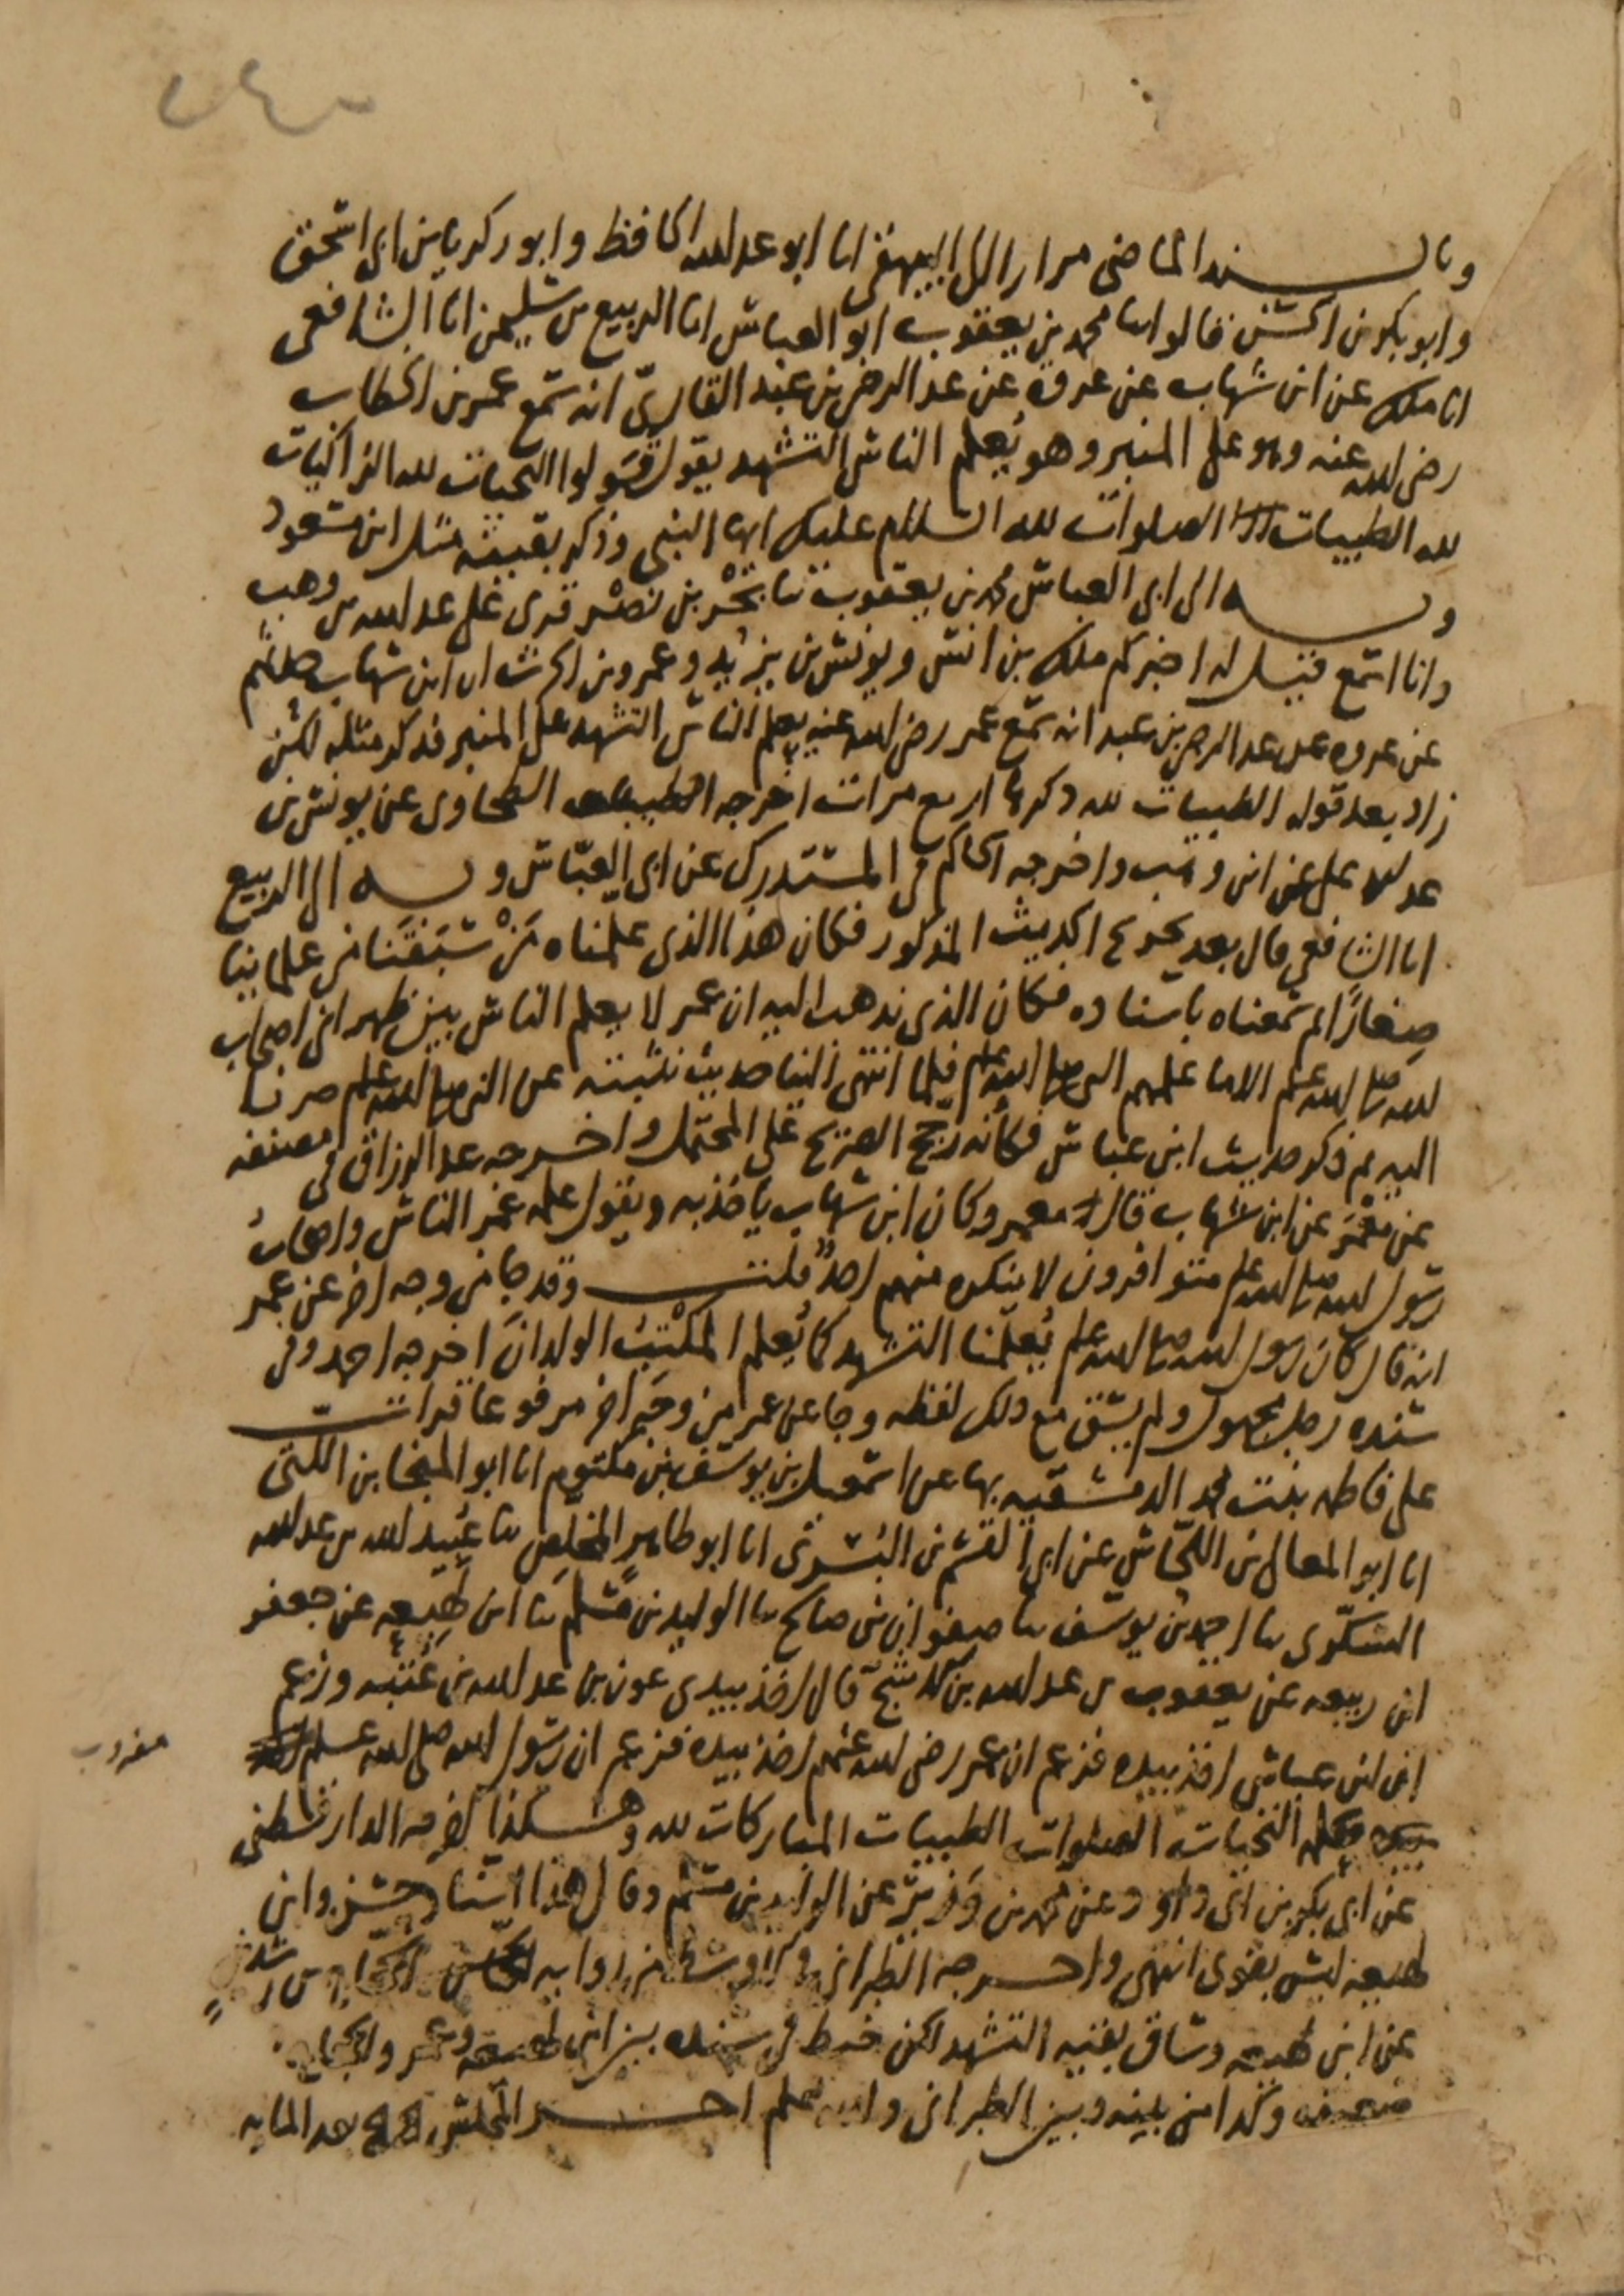 ٢٤٠
وبالسند الماضي مرارا الى البيهقي انا ابو عبد الله الحافظ وابو زكريا بن ابي اسحق
وابو بكر بن الحسن قالوا انا محمد بن يعقوب ابو العباس انا الربيع بن سليمن انا الشافعي
انا ملك عن ابن شهاب عن عروة عن عبد الرحمن بن عبد القاريّ انه سمع عمر بن الخطاب
رضي الله عنه وهو على المنبر وهو يُعلم الناس التشهد يقول قولوا التحيات لله الزاكيات
لله الطيبات الصلوات لله السلام عليك ايها النبي وذكر بقيته مثل ابن مسعود
وبه الى ابي العباس محمد بن يعقوب ثنا بحْر بن نصْر قرئ على عبد الله بن وهب
وانا اسمع قيل له اخبركم ملك بن انس ويونس بن يزيد وعمرو بن الحرث ان ابن شهاب حدثهم
عن عروه عن عبد الرحمن بن عبد انه سمع عمر رضي الله عنه يعلم الناس التشهد على المنبر فذكر مثله لكن
زاد بعد قوله الطيبات لله ذكرها اربع مرات اخرجه الطحاوي عن يونس بن
عبد الاعلى عن ابن وهب واخرجه الحاكم في المستدرك عن ابي العبّاس وبه الى الربيع
انا الشافعي قال بعد تخريج الحديث المذكور فكان هذا الذي علمناه مَنْ سَبَقَنا من علمائنا
صِغاراً ثم سمعناه باسناده فكان الذي نذهب اليه ان عمر لا يعلم الناس بين ظهراني اصحاب
الله صلى الله عليه وسلم الا ما علمهم النبي صلى الله عليه وسلم فلما انتهى الينا حديث نثبته عن النبي صلى الله عليه وسلم صرنا
اليه ثم ذكر حديث ابن عباس فكأنه رجح الصريح على المحتمل واخرجه عبد الرزاق في مصنفه
عن مَعْمَر عن ابن شهاب قال معمر وكان ابن شهاب ياخذ به ويقول علمه عمر الناس واصحابُ
رسول الله صلى الله عليه وسلم متوافرون لا ينكره منهم احدٌ قلت وقد جا من وجه اخر عن عمر
انه قال كان رسول الله صلى الله عليه وسلم يُعلّمنا التشهد كما يُعلم المكْتِبُ الولدانَ اخرجه احمد وفي
سنده رجل مجهول ولم يسق مع ذلك لفظه وجا عن عمر من وجه اخر مرفوعا قرات
على فاطمه بنت محمد الدمشقيه بها عن اسمعيل بن يوسف بن مكتوم انا ابو المنجا بن اللتي
انا ابو المعالي بن اللحّاس عن ابي القسم بن البُسري انا ابو طاهر المخلِّص ثنا عُبيد الله بن عبد الله
السكّري ثنا احمد بن يوسف ثنا صفوان بن صالح ثنا الوليد بن مسلم ثنا ابن لهيعه عن جعفر
ابن ربيعه عن يعقوب بن عبد الله بن الاشج قال اخذ بيدي عون بن عبد الله بن عُتبه وزعم
ان ابن عباس اخذ بيده فزعم ان عمر رضي الله عنهم اخذ بيده فزعم ان رسول الله صلى الله عليه وسلم
التحيات الصلوات الطيبات المباركات لله وهكذا اخرجه الدارقطني
عن ابي بكر بن ابي داود وعن محمد بن وزير عن الوليد بن مسلم وقال هذا اسناد حسن وابن
لهيعه ليس بقوي انتهى واخرجه الطبراني من رواية
عن ابن لهيعه وساق بقيه التشهد لكن سقط في سنده بين ابن لهيعه وعمر والحجاج
ضعيف وكذا من بينه وبين الطبراني والله اعلم اخر المجلس بعد المايه